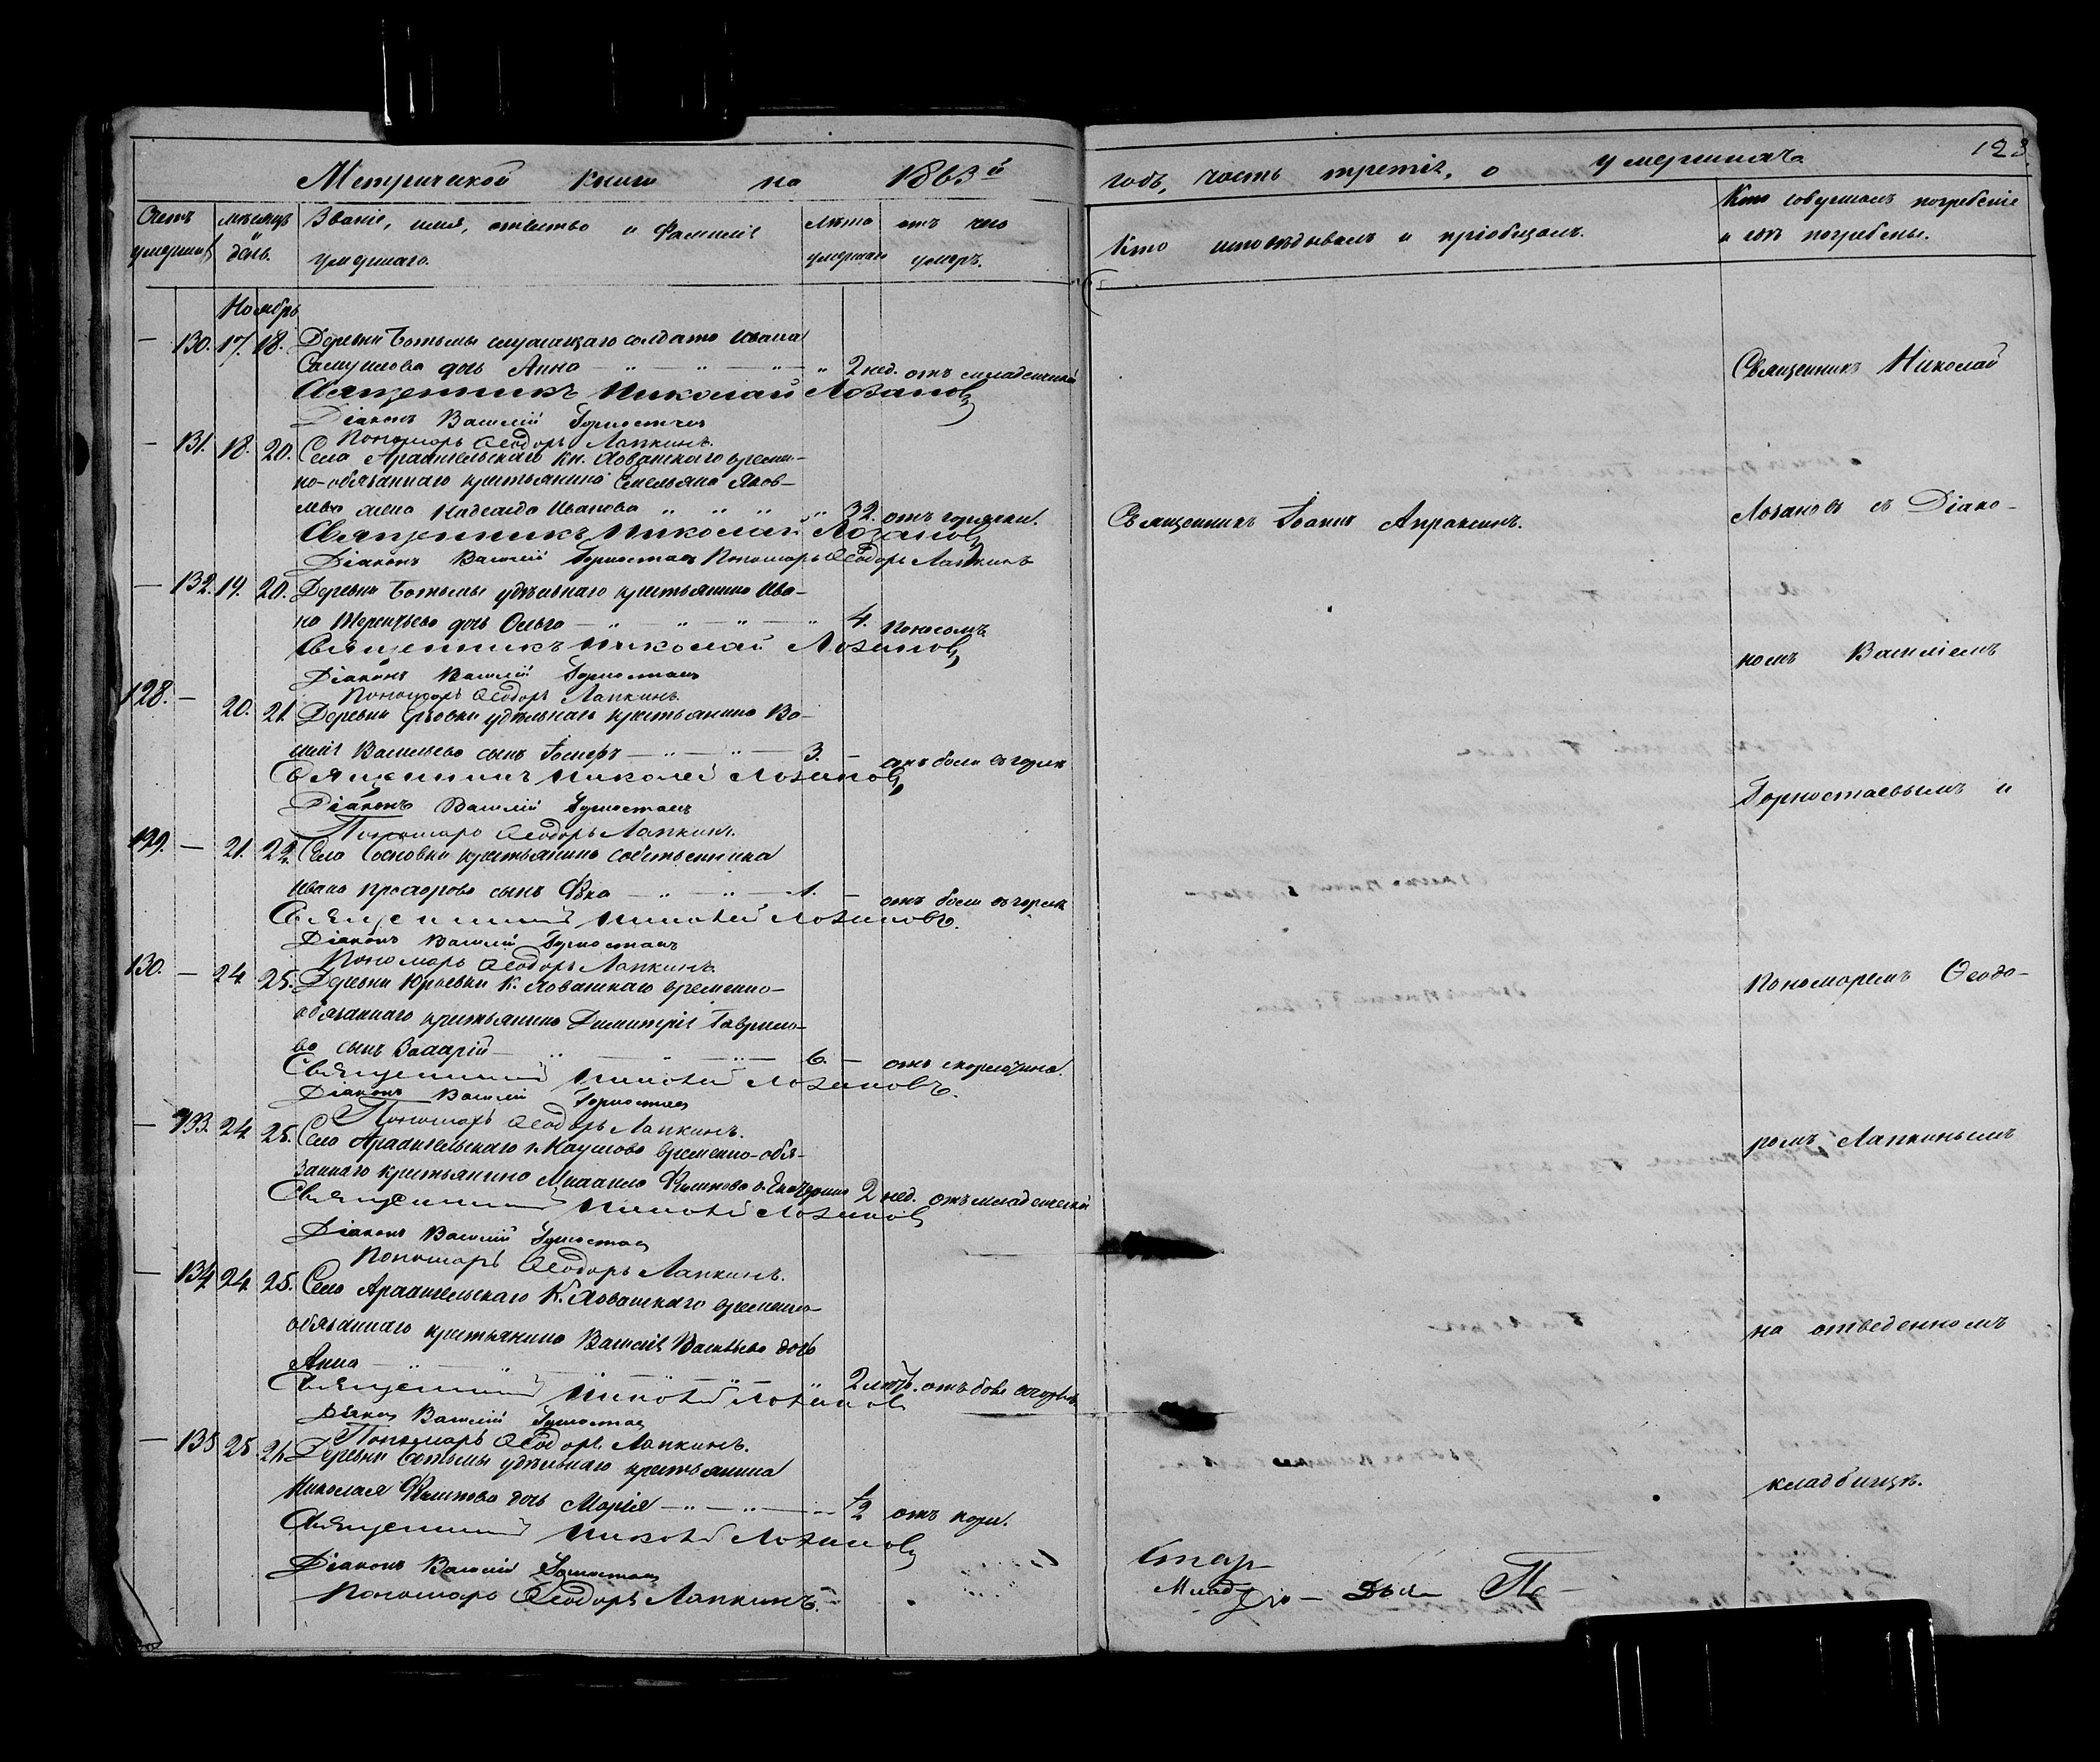 Метрической книги на 1863й
годъ, часть третія, о умершихъ.
123.
Счетъ умершихъ
мѣсяцъ и день.
Званіе, имя, отчество и Фамилія умершаго.
Лѣта умершаго
отъ чего умеръ.
Кто исповѣдывалъ и пріобщалъ.
Кто совершалъ погребеніе и гдѣ погребены.
Ноябрь
— 130. 17. 18. Деревни Ботьмы служащаго солдата Ивана
дочь Анна — „ — „ — „ 2 нед. отъ младенческой
Священникъ Николай Лозановъ
Діаконъ Василій Горностаевъ
Пономарь Ѳеодоръ Лапкинъ.
— 131. 18. 20. Села Архангельскаго Кн. Хованскаго времен-
но-обязаннаго крестьянина Емельяна Яков-
лева жена Надежда Иванова „ „ „ „ 32. отъ горячки.
Священникъ Николай Лозановъ
Діаконъ Василій Горностаевъ Пономарь Ѳеодоръ Лапкинъ
— 132. 19. 20. Деревни Ботьмы удѣльнаго крестьянина Ива-
на Терентьева дочь Ольга — „ „ — „ — „ 4. поносомъ
Священникъ Николай Лозановъ
Діаконъ Василій Горностаевъ
Пономарь Ѳеодоръ Лапкинъ.
128. — 20. 21. Деревни удѣльнаго крестьянина Ва-
силія Васильева сынъ Іосифъ — „ — „ — 3. — отъ боли въ горлѣ
Священникъ Николай Лозановъ
Діаконъ Василій Горностаевъ
Пономарь Ѳеодоръ Лапкинъ.
129. — 21. 22. Села Сосновки крестьянина собственника
Ивана Прохорова сынъ Ѳока — „ — „ — 1. — отъ боли въ горлѣ
Священникъ Николай Лозановъ.
Діаконъ Василій Горностаевъ
Пономарь Ѳеодоръ Лапкинъ.
130. — 24 25. Деревни Юрьевки К. Хованскаго временно-
обязаннаго крестьянина Димитрія Гаврило-
ва сынъ Захарій — „ — „ — „ — 6. — отъ скорлатина.
Священникъ Николай Лозановъ.
Діаконъ Василій Горностаевъ
Пономарь Ѳеодоръ Лапкинъ.
— 133. 24 25. Села Архангельскаго г. Наумова временно-обя-
заннаго крестьянина Михаила Филипова д. Екатерина 2 нед. отъ младенческой
Священникъ Николай Лозановъ
Діаконъ Василій Горностаевъ
Пономарь Ѳеодоръ Лапкинъ.
— 134 24 25. Села Архангельскаго К. Хованскаго временно-
обязаннаго крестьянина Василія Васильева дочь
Анна — „ — „ — „ — „ 2 отъ боли въ горлѣ
Священникъ Николай Лозановъ
Діаконъ Василій Горностаевъ
Пономарь Ѳеодоръ Лапкинъ.
— 135 25. 26. Деревни Ботьмы удѣльнаго крестьянина
Николая Филипова дочь Марія — „ — „ — 1/2 отъ кори.
Священникъ Николай Лозановъ
Діаконъ Василій Горностаевъ
Пономарь Ѳеодоръ Лапкинъ.
Священникъ Іоаннъ Апраксинъ.
Священникъ Николай
Лозановъ съ Діако-
номъ Василіемъ
Горностаевымъ и
Пономаремъ Ѳеодо-
ромъ Лапкинымъ
на отведенномъ
кладбищѣ.